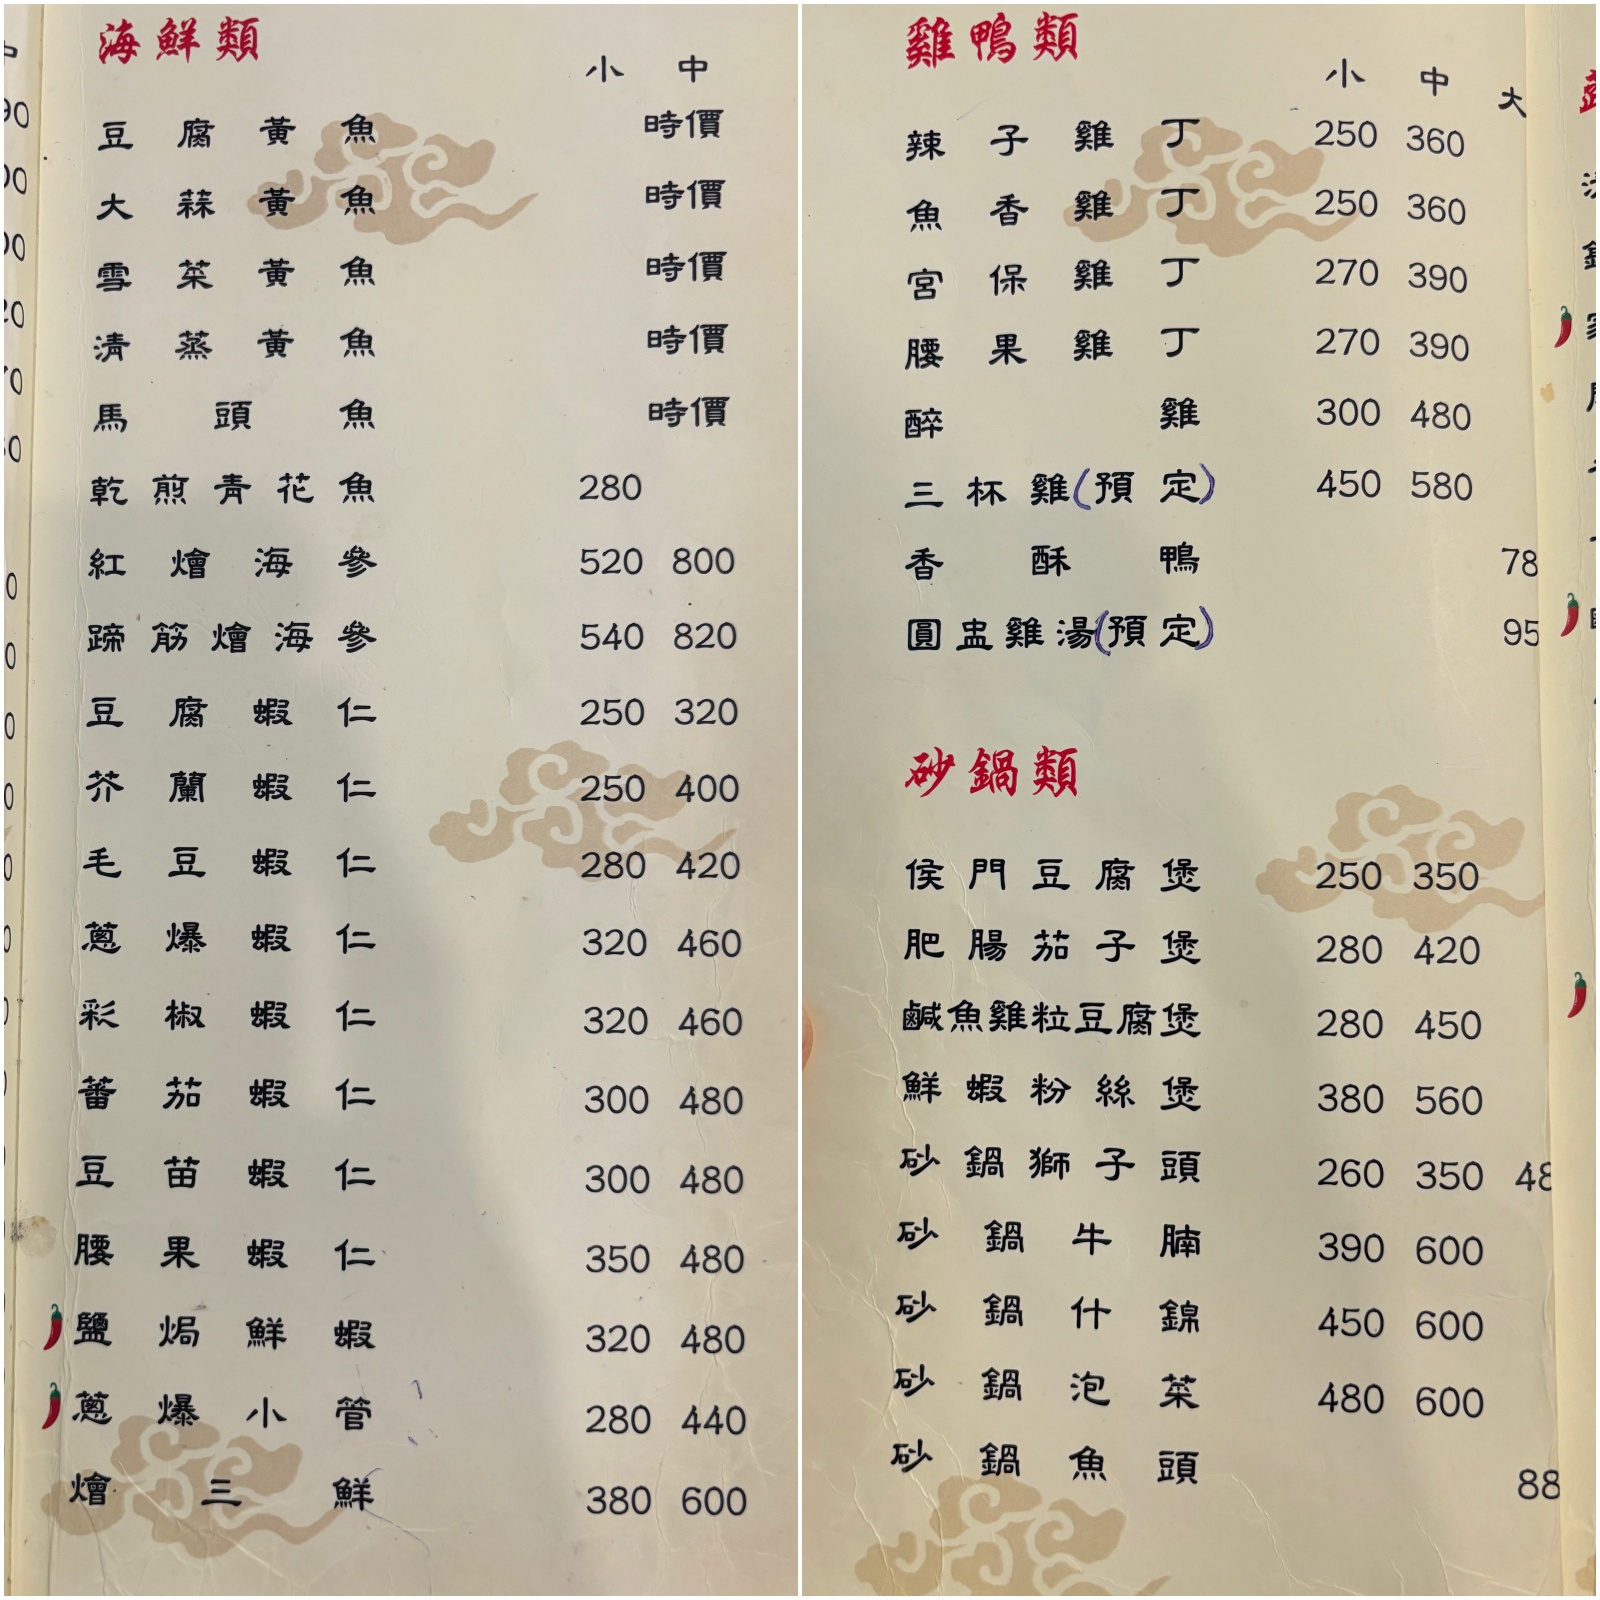 海鮮類
小 中
豆腐黃魚 時價
大蒜黃魚 時價
雪菜黃魚 時價
清蒸黃魚 時價
馬頭魚 時價
乾煎青花魚 280
紅燴海參 520 800
蹄筋燴海參 540 820
豆腐蝦仁 250 320
芥蘭蝦仁 250 400
毛豆蝦仁 280 420
蔥爆蝦仁 320 460
彩椒蝦仁 320 460
蕃茄蝦仁 300 480
豆苗蝦仁 300 480
腰果蝦仁 350 480
鹽焗鮮蝦 320 480
蔥爆小管 280 440
燴三鮮 380 600
雞鴨類
小 中 大
辣子雞丁 250 360
魚香雞丁 250 360
宮保雞丁 270 390
腰果雞丁 270 390
醉雞 300 480
三杯雞(預定) 450 580
香酥鴨 78
圓盅雞湯(預定) 95
砂鍋類
侯門豆腐煲 250 350
肥腸茄子煲 280 420
鹹魚雞粒豆腐煲 280 450
鮮蝦粉絲煲 380 560
砂鍋獅子頭 260 350 48
砂鍋牛腩 390 600
砂鍋什錦 450 600
砂鍋泡菜 480 600
砂鍋魚頭 88